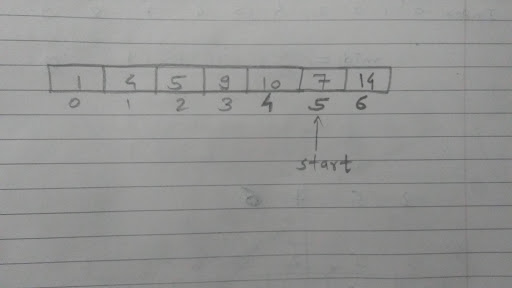 1 4 5 9 10 7 14
0 1 2 3 4 5 6
start